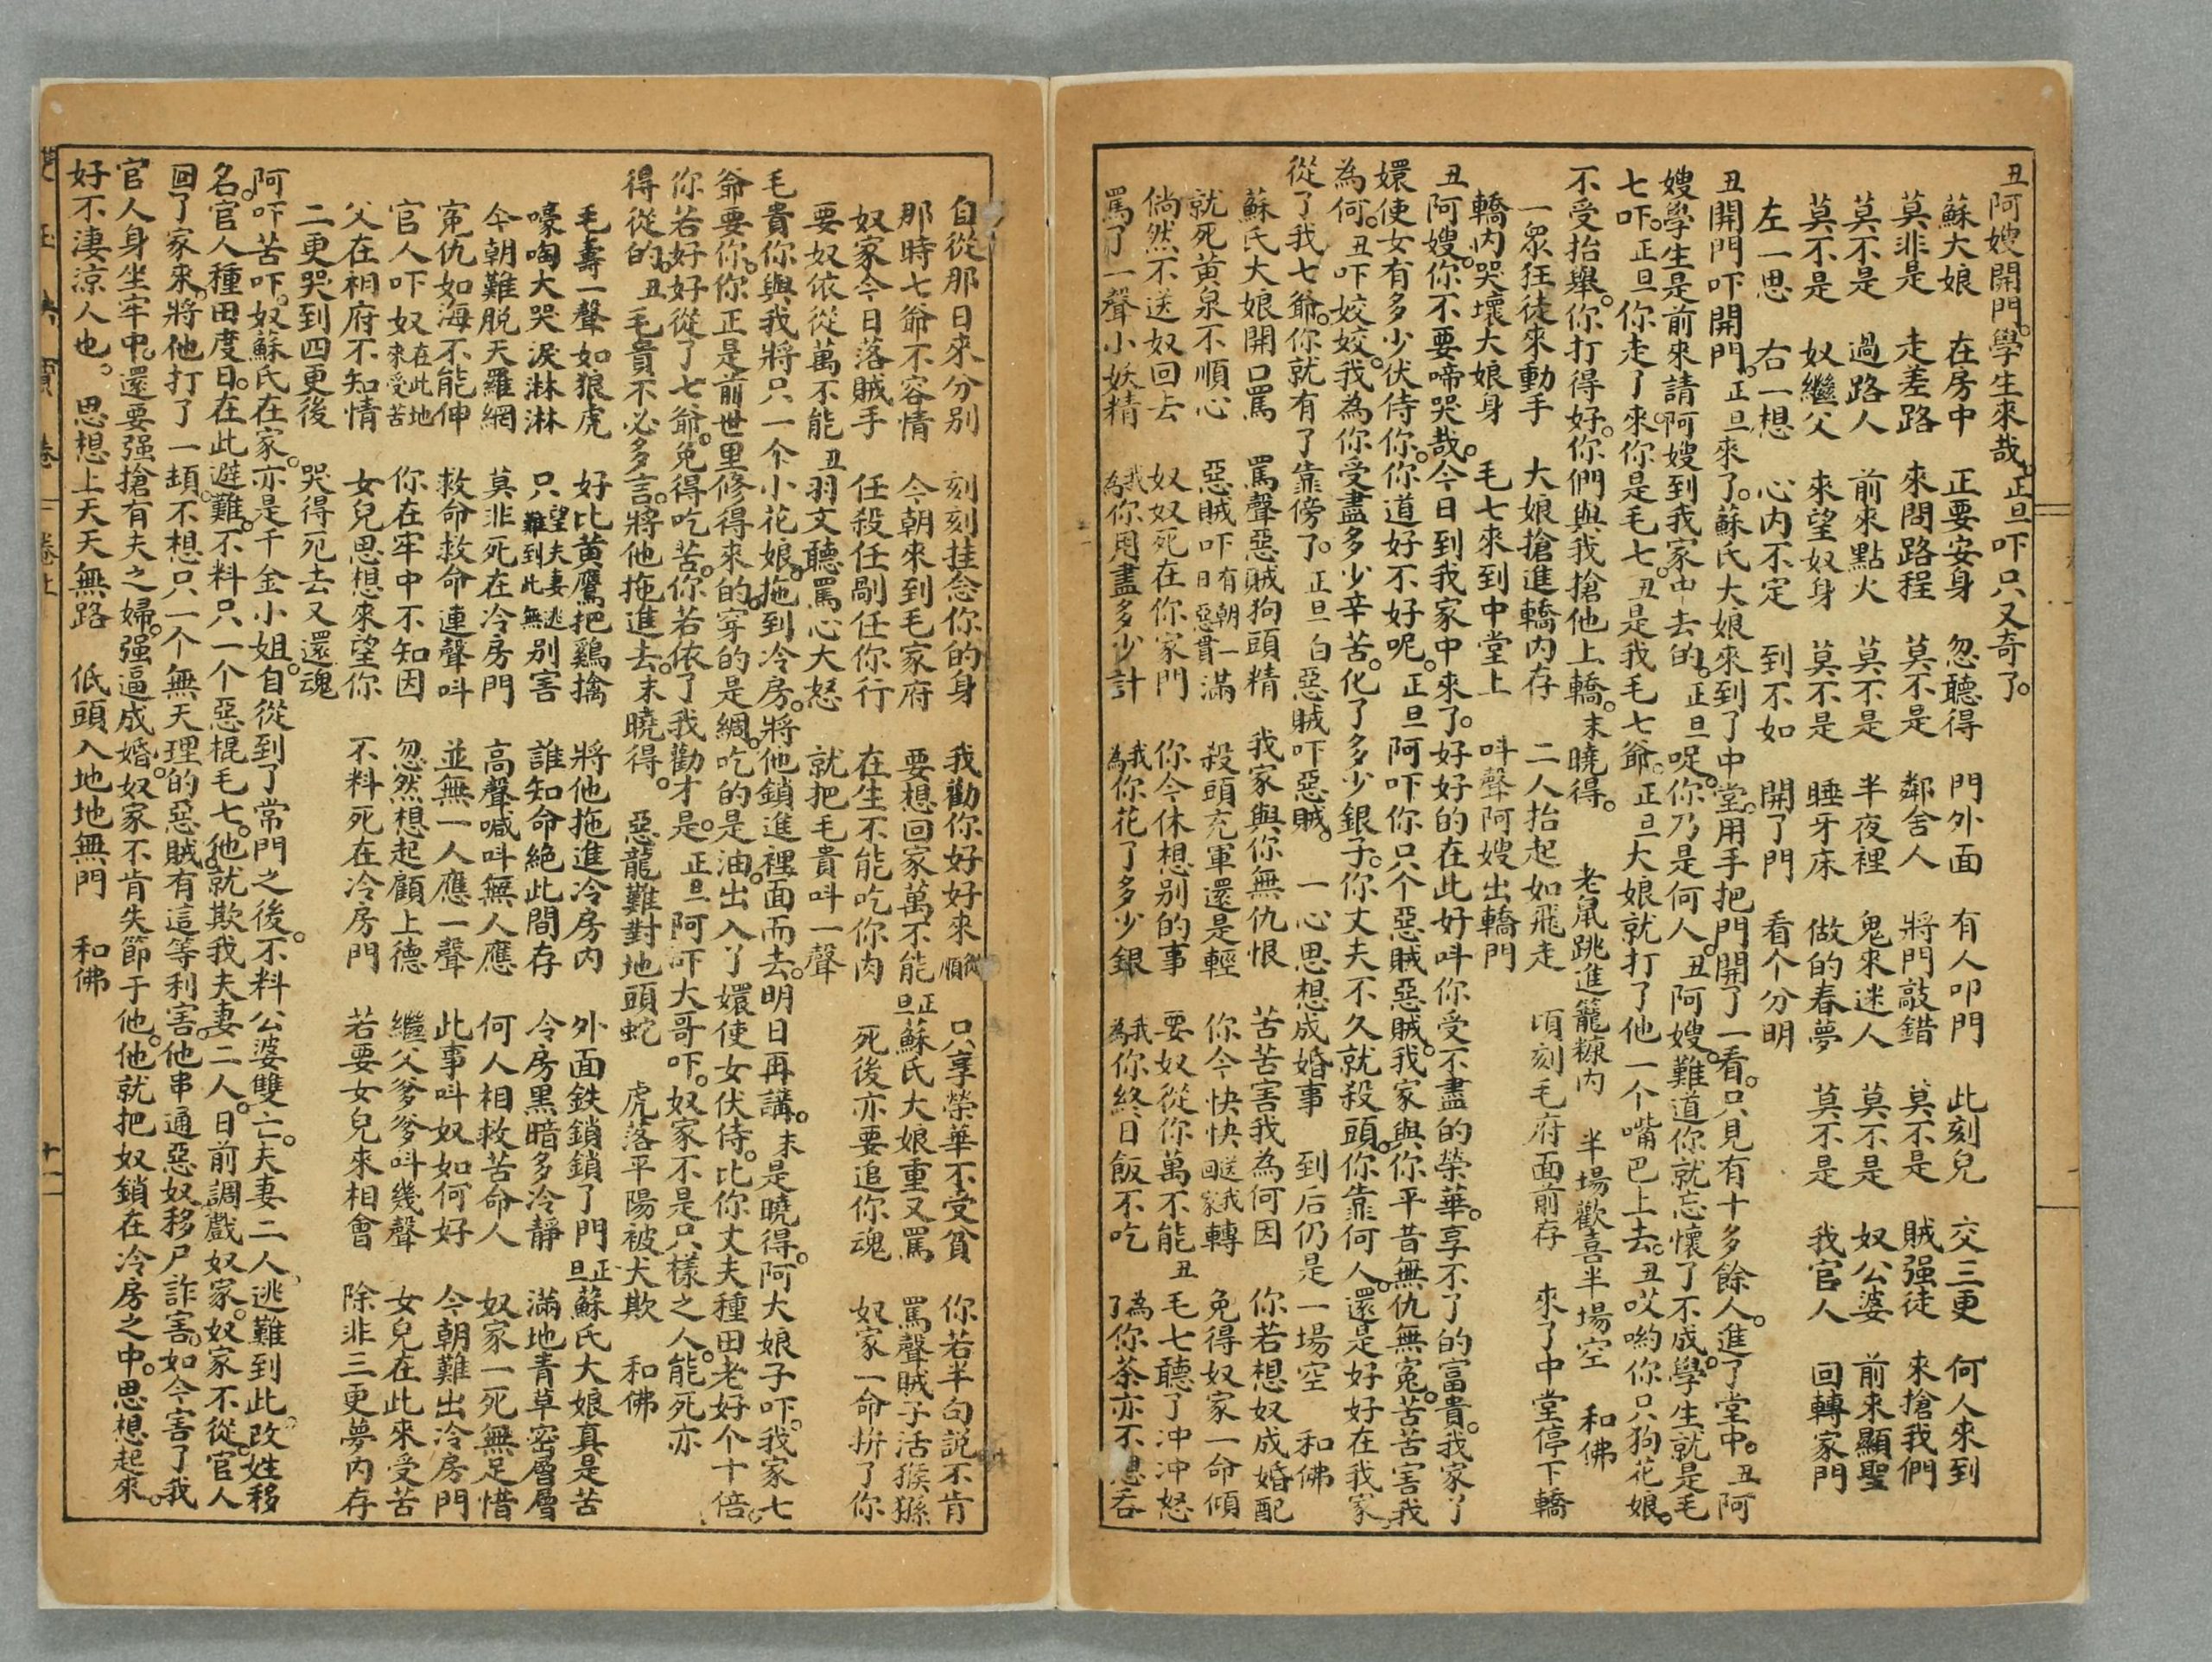 丑阿嫂開門。學生來哉。正旦吓只又奇了。
蘇大娘　在房中　正要安身　忽聽得　門外面　有人叩門　此刻兒　交三更　何人來到
莫非是　走差路　來問路程　莫不是　鄰舍人　將門敲錯　莫不是　賊强徒　來搶我們
莫不是　過路人　前來點火　莫不是　半夜裡　鬼來迷人　莫不是　奴公婆　前來顯聖
莫不是　奴繼父　來望奴身　莫不是　睡牙床　做的春夢　莫不是　我官人　回轉家門
左一思　右一想　心内不定　到不如　開了門　看个分明
丑開門吓開門。正旦來了。蘇氏大娘來到了中堂。用手把門開了一看。只見有十多餘人。進了堂中。丑阿
嫂學生是前來請阿嫂到我家中去的。正旦呸。你乃是何人。丑阿嫂。難道你就忘懷了不成。學生就是毛
七吓。正旦你走了來。你是毛七。丑是我毛七爺。正旦大娘就打了他一个嘴巴上去。丑哎喲你只狗花娘。
不受抬舉。你打得好。你們與我搶他上轎。末曉得。　老鼠跳進籠糠内　半場歡喜半場空　和佛
一衆狂徒來動手　大娘搶進轎内存　二人抬起如飛走　頃刻毛府面前存　來了中堂停下轎
轎内哭壞大娘身　毛七來到中堂上　呌聲阿嫂出轎門
丑阿嫂。你不要啼哭哉。今日到我家中來了。好好的在此好呌你受不盡的榮華。享不了的富貴。我家丫
嬛使女有多少伏侍你。你道好不好呢。正旦阿吓你只个惡賊惡賊。我家與你平昔無仇無寃。苦苦害我
為何。丑吓姣姣。我為你受盡多少辛苦。化了多少銀子。你丈夫不久就殺頭。你靠何人。還是好好在我家。
從了我七爺。你就有了靠傍了。正旦白惡賊吓惡賊。　一心思想成婚事　到后仍是一場空　和佛
蘇氏大娘開口罵　罵聲惡賊狗頭精　我家與你無仇恨　苦苦害我為何因　你若想奴成婚配
就死黃泉不順心　惡賊吓有朝一日惡貫滿　殺頭充軍還是輕　你今快快送我回家轉　免得奴家一命傾
倘然不送奴回去　奴奴死在你家門　你今休想别的事　要奴從你萬不能丑毛七聽了冲冲怒
罵了一聲小妖精　我為你用盡多少計　我為你花了多少銀　我為你終日飯不吃　為了你茶亦不想吞
自從那日來分别　刻刻挂念你的身　我勸你好好來從順　只享榮華不受貧　你若半句説不肯
那時七爺不容情　今朝來到毛家府　要想回家萬不能正旦蘇氏大娘重又罵　罵聲賊子活猴猻
奴家今日落賊手　任殺任剮任你行　在生不能吃你肉　死後亦要追你魂　奴家一命拚了你
要奴依從萬不能丑羽文聽罵心大怒　就把毛貴呌一聲
毛貴你與我將只一个小花娘。拖到冷房。將他鎖進裡面而去。明日再講。末是曉得。阿大娘子吓。我家七
爺要你。你正是前世里修得來的。穿的是綢。吃的是油。出入丫嬛使女伏侍。比你丈夫種田老好个十倍。
你若好好從了七爺。免得吃苦。你若依了我勸才是。正旦阿吓大哥吓。奴家不是只樣之人。能死亦
得從的。丑毛貴不必多言。將他拖進去。末曉得。　惡龍難對地頭蛇　虎落平陽被犬欺　和佛
毛壽一聲如狼虎　好比黄鷹把鷄擒　將他拖進冷房内　外面鉄鎖鎖了門正旦蘇氏大娘真是苦
嚎啕大哭淚淋淋　只望夫妻逃難到此無别害　誰知命絶此間存　冷房黑暗多冷靜　滿地青草密層層
今朝難脱天羅網　莫非死在冷房門　高聲喊呌無人應　何人相救苦命人　奴家一死無足惜
寃仇如海不能伸　救命救命連聲呌　並無一人應一聲　此事呌奴如何好　今朝難出冷房門
官人吓奴在此地來受苦　你在牢中不知因　忽然想起顧上德　繼父爹爹呌幾聲　女兒在此來受苦
父在相府不知情　女兒思想來望你　不料死在冷房門　若要女兒來相會　除非三更夢内存
二更哭到四更後　哭得死去又還魂
阿吓苦吓。奴蘇氏在家。亦是千金小姐。自從到了常門之後。不料公婆雙亡。夫妻二人。逃難到此。改姓移
名。官人種田度日。在此避難。不料只一个惡棍毛七。他就欺我夫妻二人。日前調戲奴家。奴家不從。官人
回了家來。將他打了一頓。不想只一个無天理的惡賊。有這等利害。他串通惡奴移尸詐害。如今害了我
官人身坐牢中。還要强搶有夫之婦。强逼成婚。奴家不肯失節于他。他就把奴鎖在冷房之中。思想起來。
好不淒涼人也。　思想上天天無路　低頭入地地無門　和佛
卷上
十一